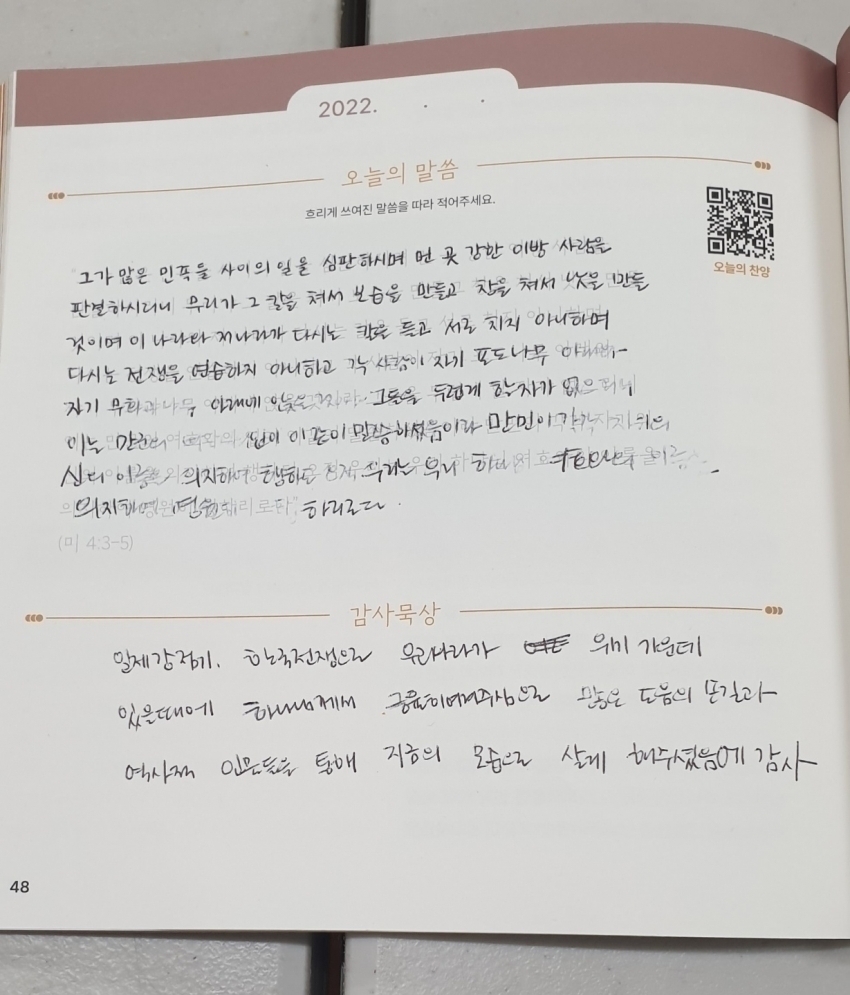 2022. . .
오늘의 말씀
흐리게 쓰여진 말씀을 따라 적어주세요.
오늘의 찬양
그가 많은 민족들 사이의 일을 심판하시며 먼 곳 강한 이방 사람을
판결하시리니 무리가 그 칼을 쳐서 보습을 만들고 창을 쳐서 낫을 만들
것이며 이 나라와 저나라가 다시는 칼을 들고 서로 치지 아니하며
다시는 전쟁을 연습하지 아니하고 각 사람이 자기 포도나무 아래와
자기 무화과나무 아래에 앉을 것이라 그들을 두렵게 할 자가 없으리니
이는 만군의 여호와의 입이 이같이 말씀하셨음이라 만민이 각각 자기의
신의 이름을 의지하여 행하되 우리는 우리 하나님 여호와의 이름
의지하여 영원히 하리로다.
(미 4:3-5)
감사묵상
일제강점기, 한국전쟁으로 우리나라가 위기 가운데
있을때에 하나님께서 긍휼히여겨주심으로 많은 도움의 손길과
역사적 인물들을 통해 지금의 모습으로 살게 해주셨음에 감사
48